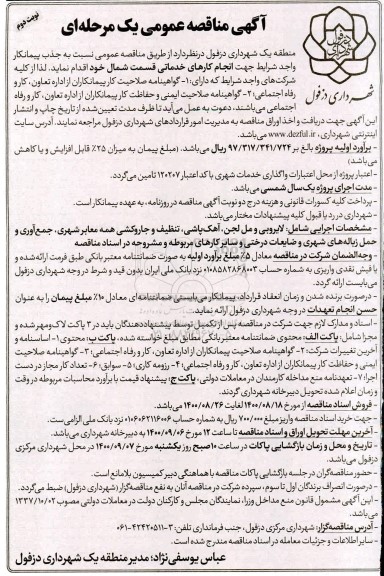 آگهی مناقصه عمومی یک مرحله‌ای
نوبت دوم
شهرداری دزفول
منطقه یک شهرداری دزفول درنظردارد از طریق مناقصه عمومی نسبت به جذب پیمانکار
واجد شرایط جهت انجام کارهای خدماتی قسمت شمال خود اقدام نماید. لذا از کلیه
شرکت‌های واجد شرایط که دارای: ۱- گواهینامه صلاحیت کار پیمانکاران از اداره تعاون، کار و
رفاه اجتماعی؛ ۲- گواهینامه صلاحیت ایمنی و حفاظت کار پیمانکاران از اداره تعاون، کار و رفاه
اجتماعی می‌باشند، دعوت به عمل می‌آید تا ظرف مدت تعیین شده از تاریخ چاپ و انتشار
این آگهی جهت دریافت و اخذ اوراق مناقصه به مدیریت امور قراردادهای شهرداری دزفول مراجعه نمایند. آدرس سایت
اینترنتی شهرداری، www.dezful.ir می‌باشد.
- برآورد اولیه پروژه بالغ بر ۹۷/۳۱۷/۳۴۱/۷۲۴ ریال می‌باشد. (مبلغ پیمان به میزان ۲۵٪ قابل افزایش و یا کاهش
می‌باشد)
- اعتبار پروژه از محل اعتبارات واگذاری خدمات شهری با کد اعتبار ۱۲۰۲۰۷ تامین می‌گردد.
- مدت اجرای پروژه یک سال شمسی می‌باشد.
- پرداخت کلیه کسورات قانونی و هزینه درج دو نوبت آگهی مناقصه در روزنامه، به عهده پیمانکار است.
- شهرداری در رد یا قبول کلیه پیشنهادات مختار می‌باشد.
- مشخصات اجرایی شامل: لایروبی و مل لجن، آهک‌پاشی، تنظیف و جاروکشی همه معابر شهری، جمع‌آوری و
حمل زباله‌های شهری و ضایعات درختی و سایر کارهای مربوطه و مشروحه در اسناد مناقصه
- وجه‌الضمان شرکت در مناقصه معادل ۵٪ مبلغ برآورد اولیه به صورت ضمانتنامه معتبر بانکی طبق فرمت ارائه شده و
یا فیش نقدی واریزی به شماره حساب ۰۱۰۸۵۸۲۸۶۸۰۰۳ نزد بانک ملی ایران بدون قید و شرط در وجه شهرداری دزفول
می‌بایست ارائه گردد.
- درصورت برنده شدن و زمان انعقاد قرارداد، پیمانکار می‌بایستی ضمانتنامه‌ای معادل ۱۰٪ مبلغ پیمان را به عنوان
حسن انجام تعهدات در وجه شهرداری دزفول ارائه نماید.
- اسناد و مدارک لازم جهت شرکت در مناقصه پس از تکمیل توسط پیشنهاددهندگان باید در ۳ پاکت لاک و مهر شده و
مجزا شامل: پاکت الف: محتوی ضمانتنامه معتبر بانکی مطابق مبلغ خواسته شده، پاکت ب: محتوی ۱- اساسنامه و
آخرین تغییرات شرکت؛ ۲- گواهینامه صلاحیت پیمانکاران از اداره تعاون، کار و رفاه اجتماعی؛ ۳- گواهینامه صلاحیت
ایمنی و حفاظت کار پیمانکاران از اداره تعاون، کار و رفاه اجتماعی؛ ۴- رزومه کاری؛ ۵- سوابق؛ ۶- تعداد کار مجاز در دست
اجرا؛ ۷- تعهدنامه منع مداخله کارمندان در معاملات دولتی، پاکت ج: پیشنهاد قیمت با برآورد محاسبات مربوطه در وقت
و زمان اعلام شده تحویل دبیرخانه شهرداری گردند.
- فروش اسناد مناقصه از مورخ ۱۴۰۰/۰۸/۱۸ لغایت ۱۴۰۰/۰۸/۲۶ می‌باشد.
- جهت خرید اسناد مناقصه واریز مبلغ ۷۰۰/۰۰۰ ریال به شماره حساب ۰۱۰۶۰۶۲۱۱۶۰۰۴ نزد بانک ملی الزامی‌ست.
- آخرین مهلت تحویل اوراق و اسناد مناقصه تا ساعت ۱۲ مورخ ۱۴۰۰/۰۹/۰۶ به دبیرخانه شهرداری می‌باشد.
- تاریخ و محل و زمان بازگشایی پاکات در ساعت ۱۰ صبح روز یکشنبه مورخ ۱۴۰۰/۰۹/۰۷ در محل شهرداری مرکزی
دزفول می‌باشد.
- حضور مناقصه‌گران در جلسه بازگشایی پاکات مناقصه با هماهنگی دبیر کمیسیون بلامانع است.
- درصورت انصراف برندگان اول تا سوم، سپرده شرکت در مناقصه آنان به نفع مناقصه‌گزار (شهرداری دزفول) ضبط می‌گردد.
- این آگهی مشمول قانون منع مداخل وزرا، نمایندگان مجلس و کارکنان دولت در معاملات دولتی مصوب ۱۳۳۷/۱۰/۰۲
می‌باشد.
- آدرس مناقصه‌گزار: شهرداری مرکزی دزفول، جنب فرمانداری تلفن: ۳-۴۲۴۲۰۵۱۱-۰۶۱
- سایر اطلاعات و جزئیات معامله در اسناد مناقصه مندرج شده است.
عباس یوسفی‌نژاد؛ مدیر منطقه یک شهرداری دزفول